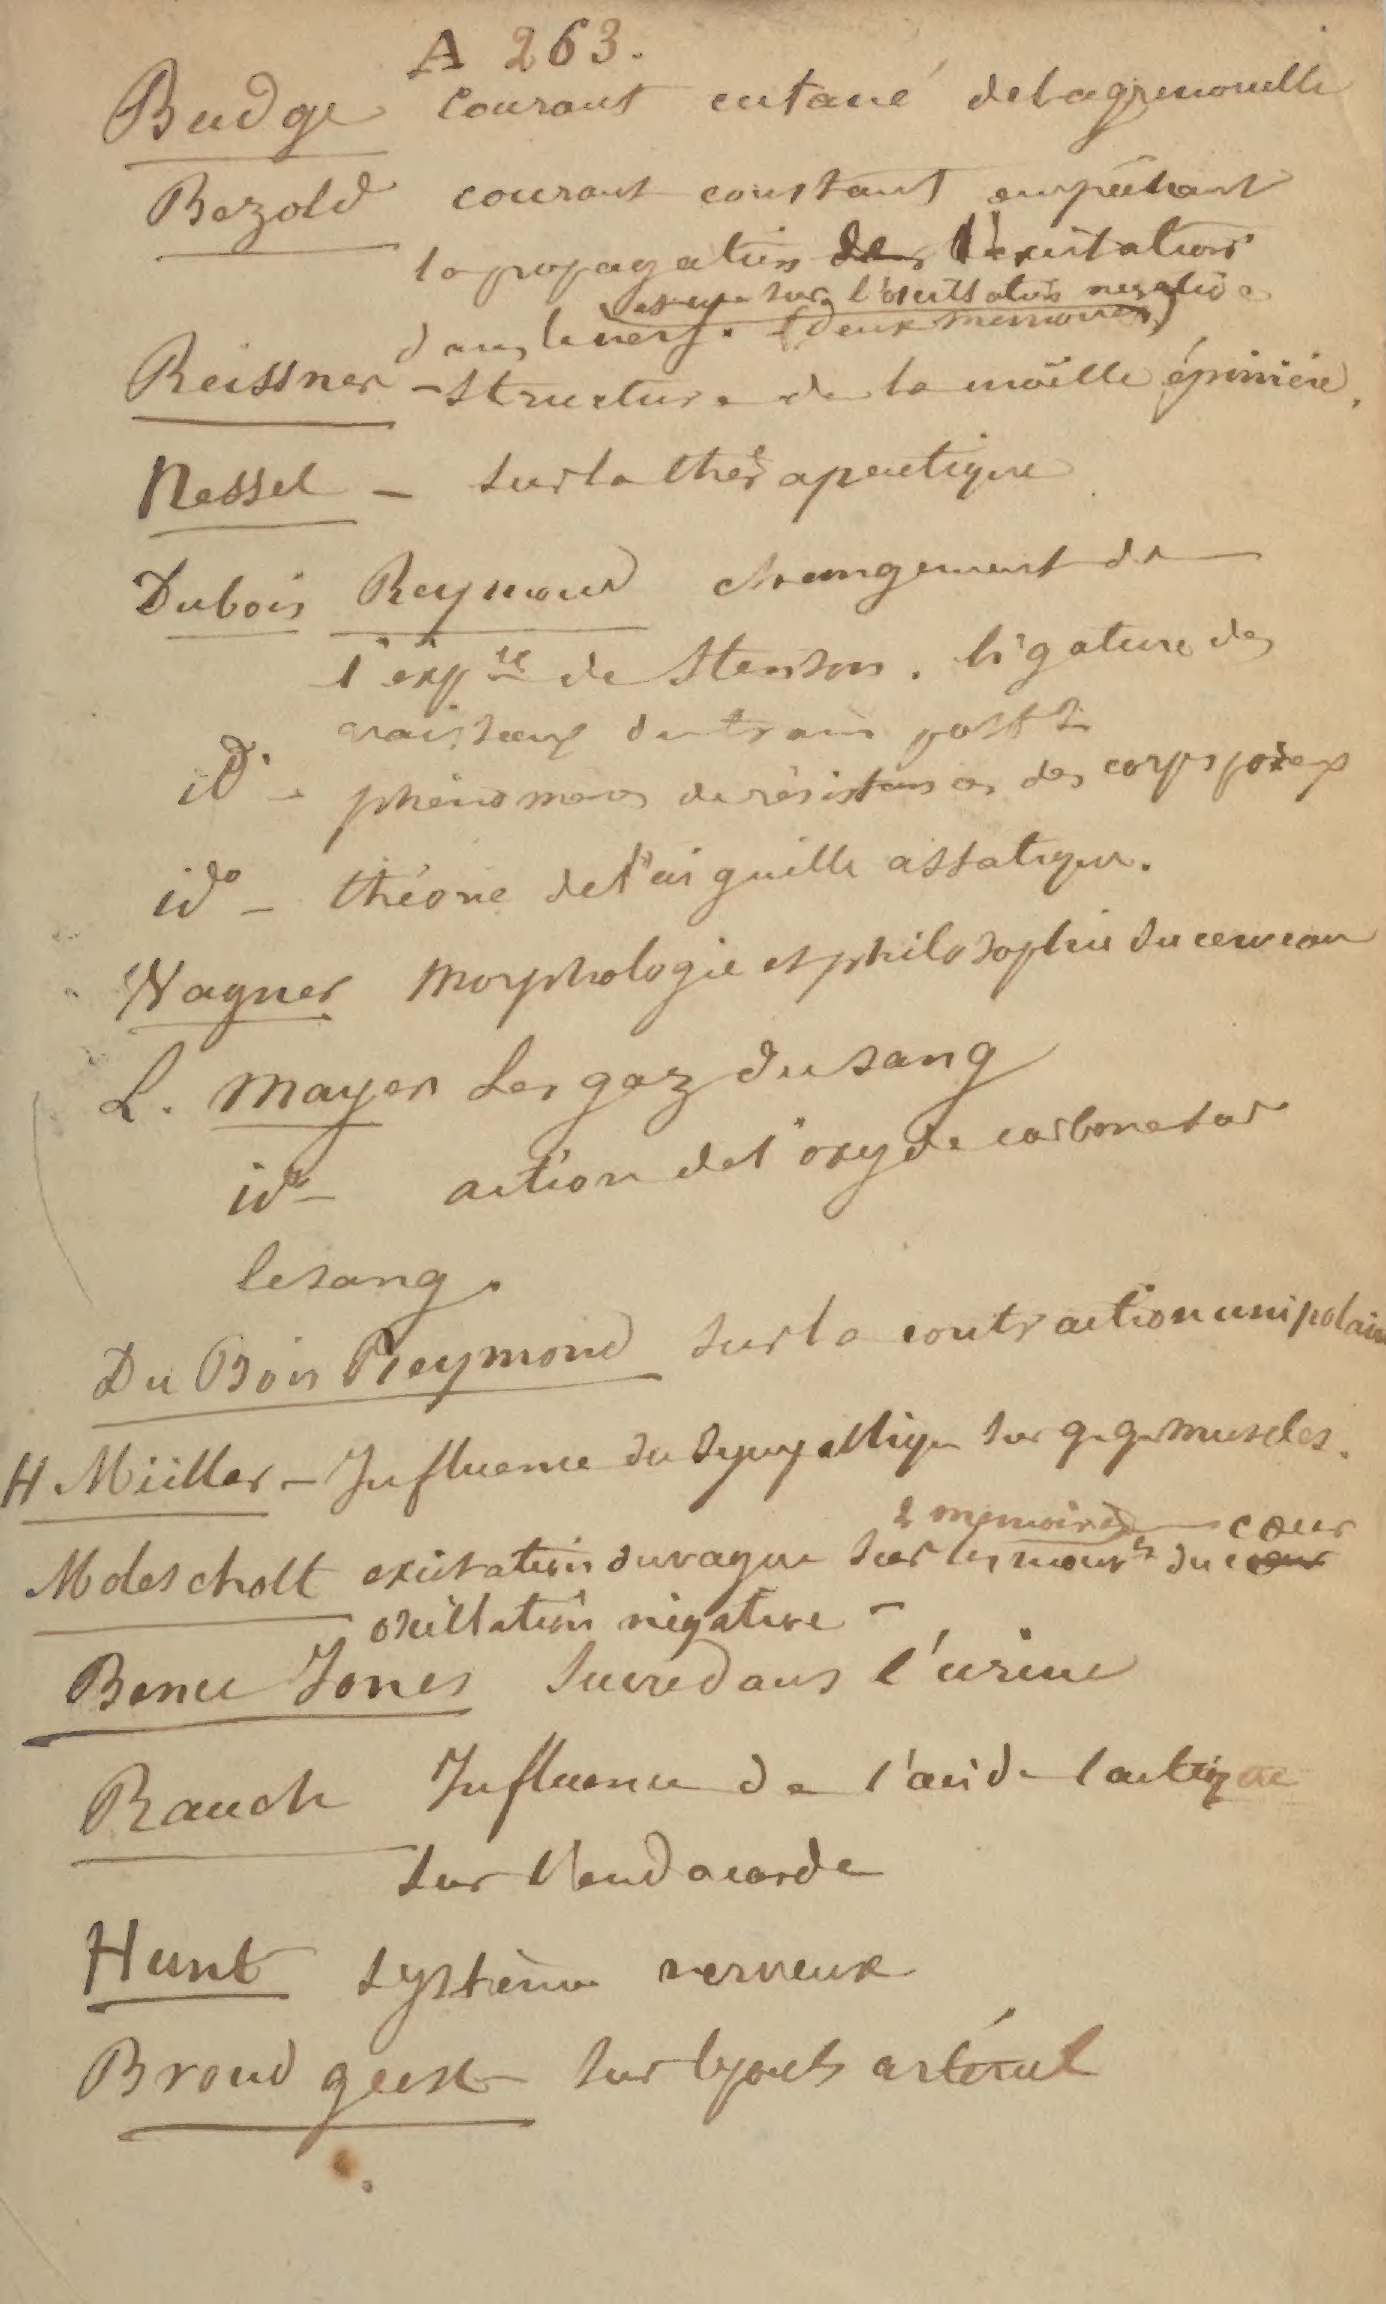 A 263.
Budge courant cutané de la grenouille
Bezold courant constant empêchant
la propagation des l'excitation
et un sur l'oscillation négative
dans le nerf. (deux mémoires)
Reissner - structure de la moëlle épinière.
Nessel - sur la thérapeutique
Dubois Reymond changement de
l'exp.ce de Stenson. ligature des
vaisseaux du train post.r
id. - phénomènes de résistances des corps poreux
ido - théorie de l'aiguille assatique.
Wagner Morphologie et philosophie du cerveau
L. Mayer Les gaz du sang
ido - action de l'oxyde carbone sur
le sang.
Du Bois Reymond sur la contraction unipolaire
H Müller - Influence du sympathique sur q.q. muscles.
2 mémoires cœur
Moleschott excitation du vague sur les mouvts du cœur
oscillation négative -
Bence Jones sucre dans l'urine
Rauch Influence de l'acide lactique
sur l'endocarde
Hunt système nerveux
Brondgeest sur le pouls artériel